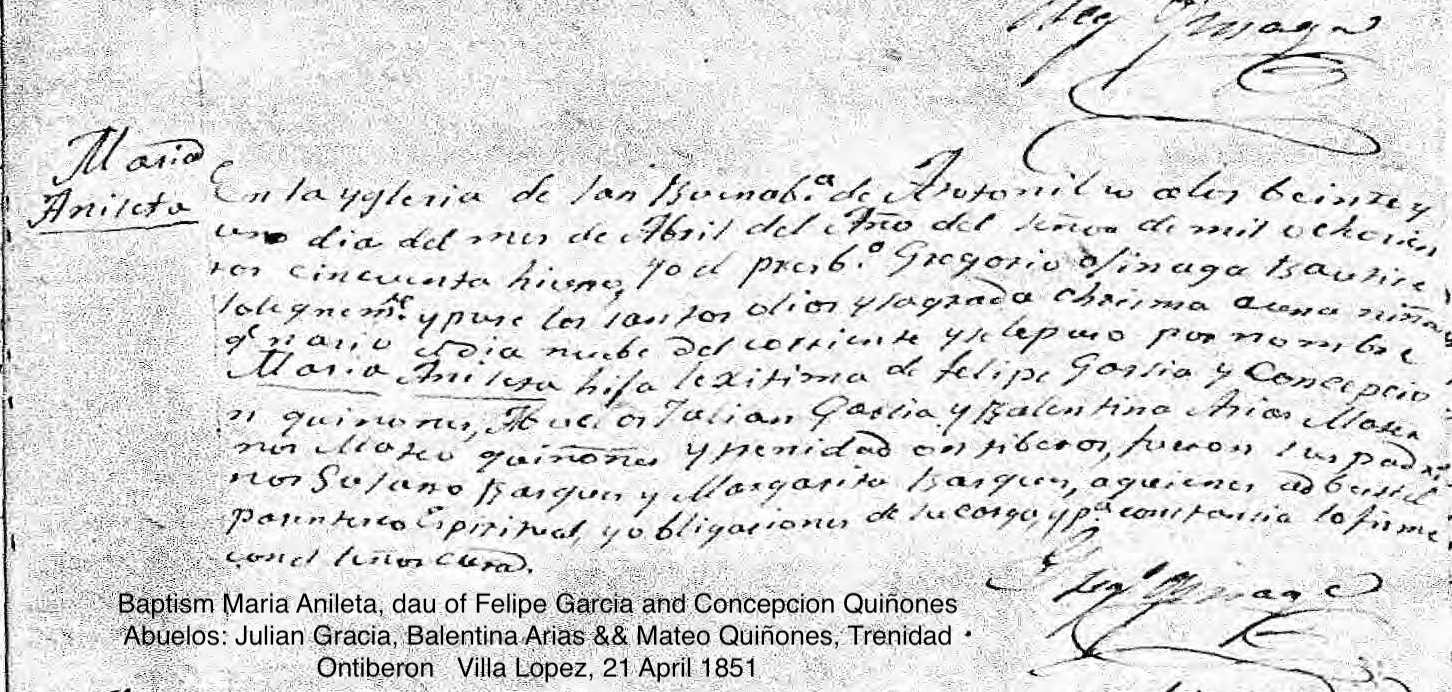 Maria
Anileta
En la yglesia de san Buenab.ª de Atotonilco a los beinte y
uno dia del mes de Abril del Año del señor de mil ochosien
tos cincuenta hiuno, Yo el presb.º Gregorio Osinaga Bautise
solegnem.te y puse los santos olios y sagrada chrisma a una niña
q.e nacio el dia nuebe del corriente y se le puso por nombre
Maria Anileta hija lexitima de Felipe Garsia y Concepcio
n quiñones, Abuelos Julian Garsia y Balentina Arias Mater
nos Mateo quiñones y trenidad ontiberos, fueron sus padri
nos Basques y Margarita Basques, a quienes adbertí el
parentesco Espiritual, y obligasiones de su cargo, y p.ª constansia lo firme
con el señor Cura.
Baptism Maria Anileta, dau of Felipe Garcia and Concepcion Quiñones
Abuelos: Julian Gracia, Balentina Arias && Mateo Quiñones, Trenidad
Ontiberon Villa Lopez, 21 April 1851